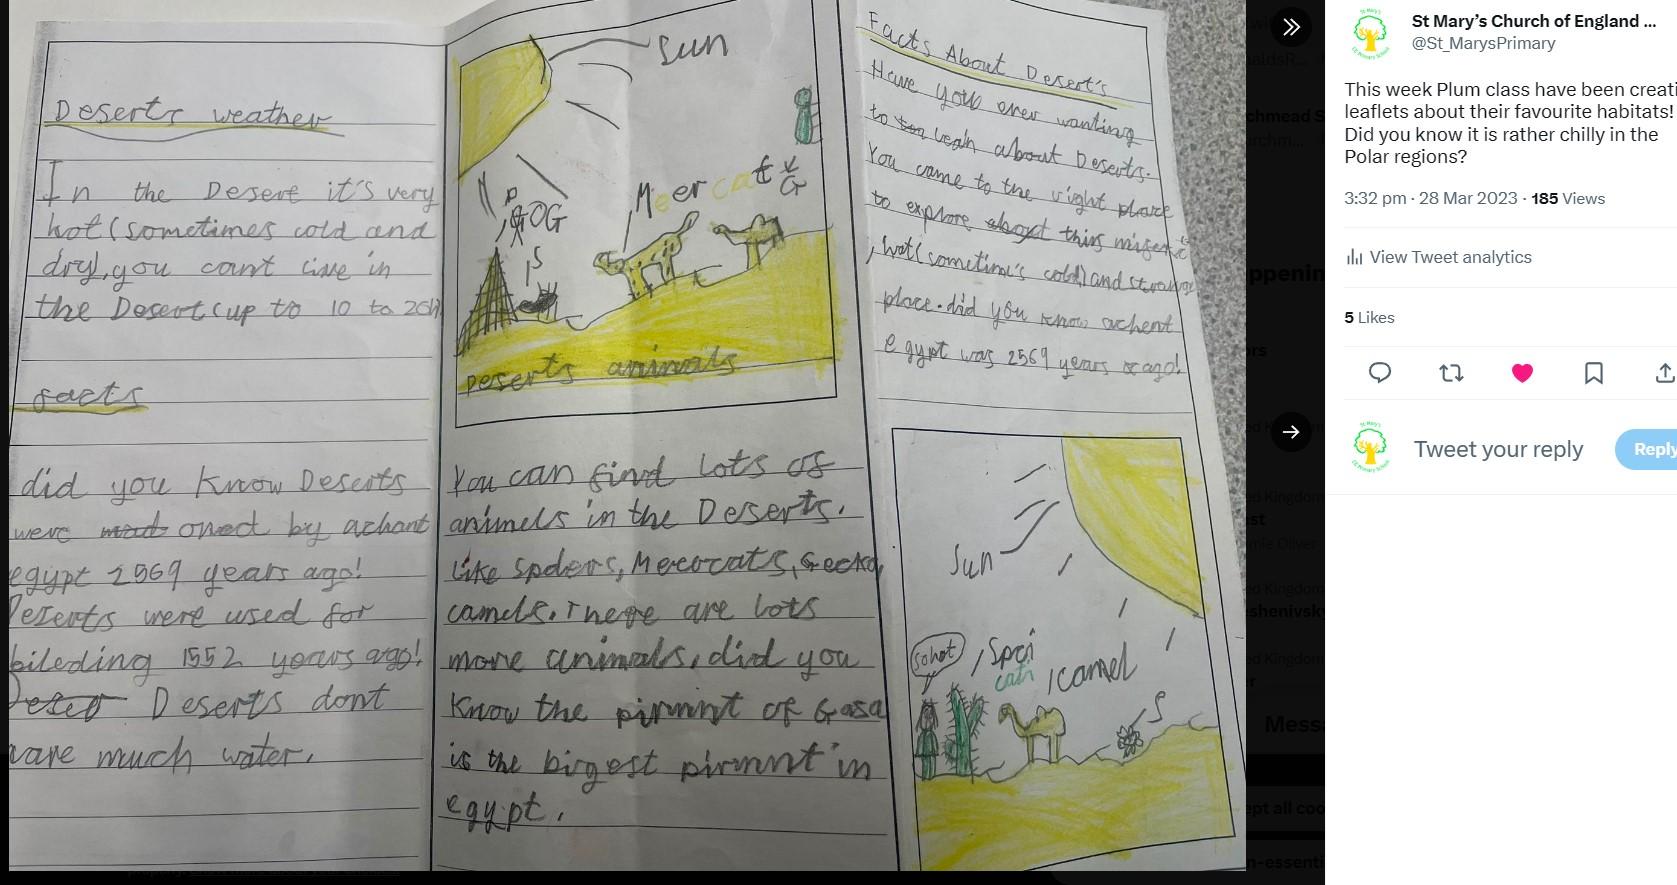 Deserts weather
In the Desert it's very
hot (sometimes cold and
dry), you cant live in
the Desert (up to 10 to
facts
did you know Deserts
were oned by achant
egypt 2569 years ago!
Deserts were used for
bileding 1552 years ago!
Deserts dont
vare much water.
Sun
Meercat
G
POG
S
Deserts animals
You can find lots of
animels in the Deserts.
like Spders, Merocats, Gecko,
camels. There are lots
more animals, did you
Know the pirmnt of Gasa
is the birgest pirmnt in
egypt.
Facts About Desert's
Have you ever wanting
to leah about Deserts.
You came to the right place
to explore this
, hot (sometime's cold) and
place. did you know achent
egypt was 2569 years ago!
Sun
sohot
Spai
cati
camel
S
St Mary's Church of England ...
@St_MarysPrimary
This week Plum class have been creati
leaflets about their favourite habitats!
Did you know it is rather chilly in the
Polar regions?
3:32 pm · 28 Mar 2023 · 185 Views
View Tweet analytics
5 Likes
Tweet your reply
Reply